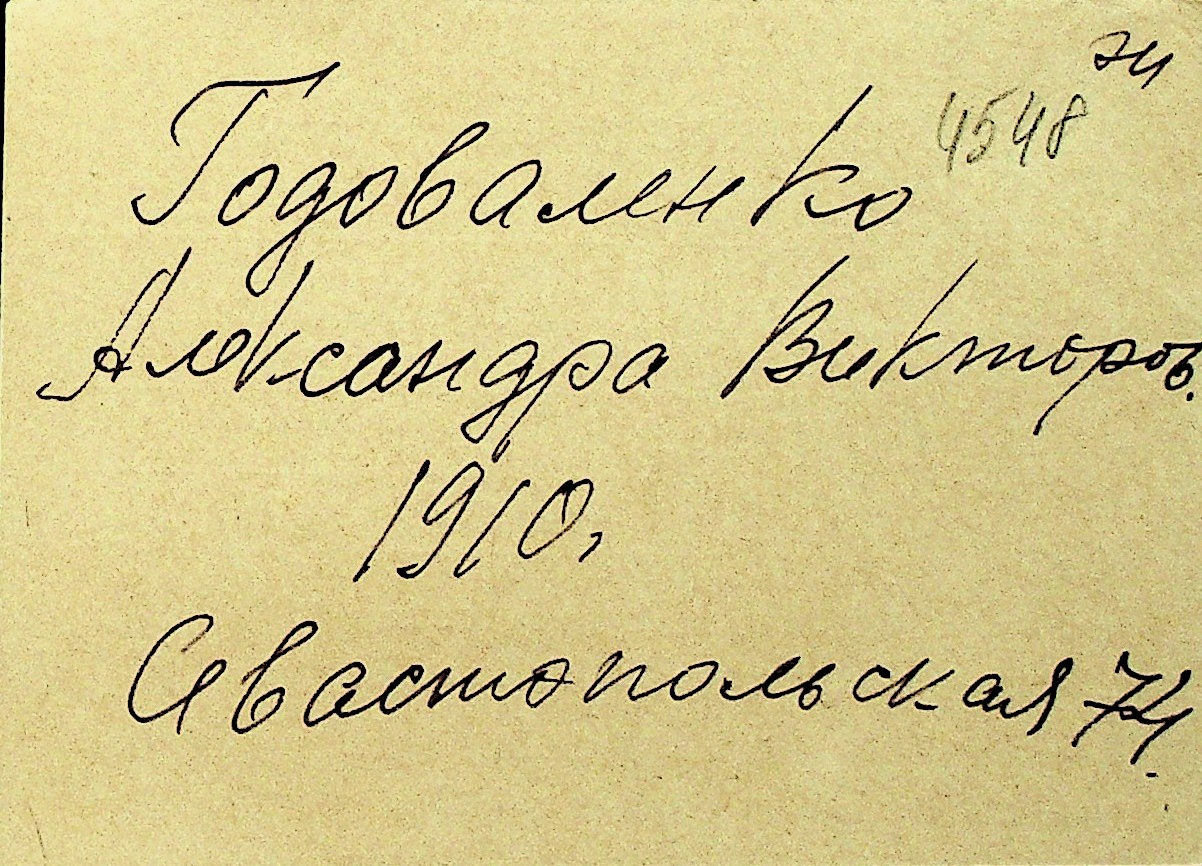 4548
Годоваленко
Александра Викторов.
1910,
Севастопольская 74.